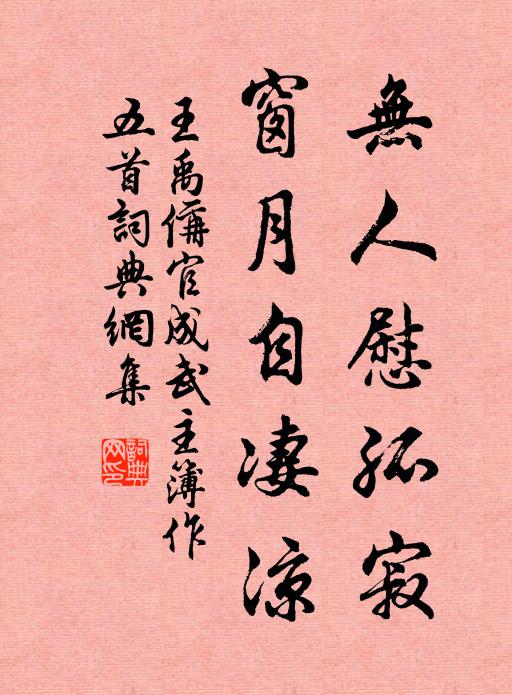 無人慰孤寂
窗月自凄涼
王禹偁官成武主簿作
五首詞典網集
詞典
网印